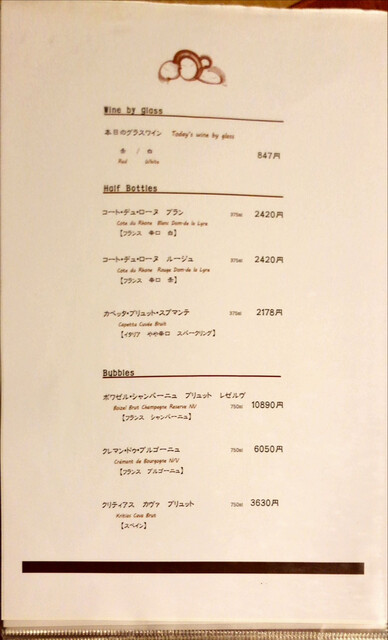 Wine by glass
本日のグラスワイン Today's wine by glass
赤 / 白
Red White 847円
Half Bottles
コート・デュ・ローヌ ブラン 375ml 2420円
Cote du Rhone Blanc Dom-de la Lyre
【フランス 辛口 白】
コート・デュ・ローヌ ルージュ 375ml 2420円
Cote du Rhone Rouge Dom-de la Lyre
【フランス 辛口 赤】
カペッタ・ブリュット・スプマンテ 375ml 2178円
Capetta Cuvée Brut
【イタリア やや辛口 スパークリング】
Bubbles
ボワゼル・シャンパーニュ ブリュット レゼルヴ
Boizel Brut Champagne Reserve NV 750ml 10890円
【フランス シャンパーニュ】
クレマン・ドゥ・ブルゴーニュ 750ml 6050円
Crémant de Bourgogne N/V
【フランス ブルゴーニュ】
クリティアス カヴァ ブリュット 750ml 3630円
Kritias Cava Brut
【スペイン】